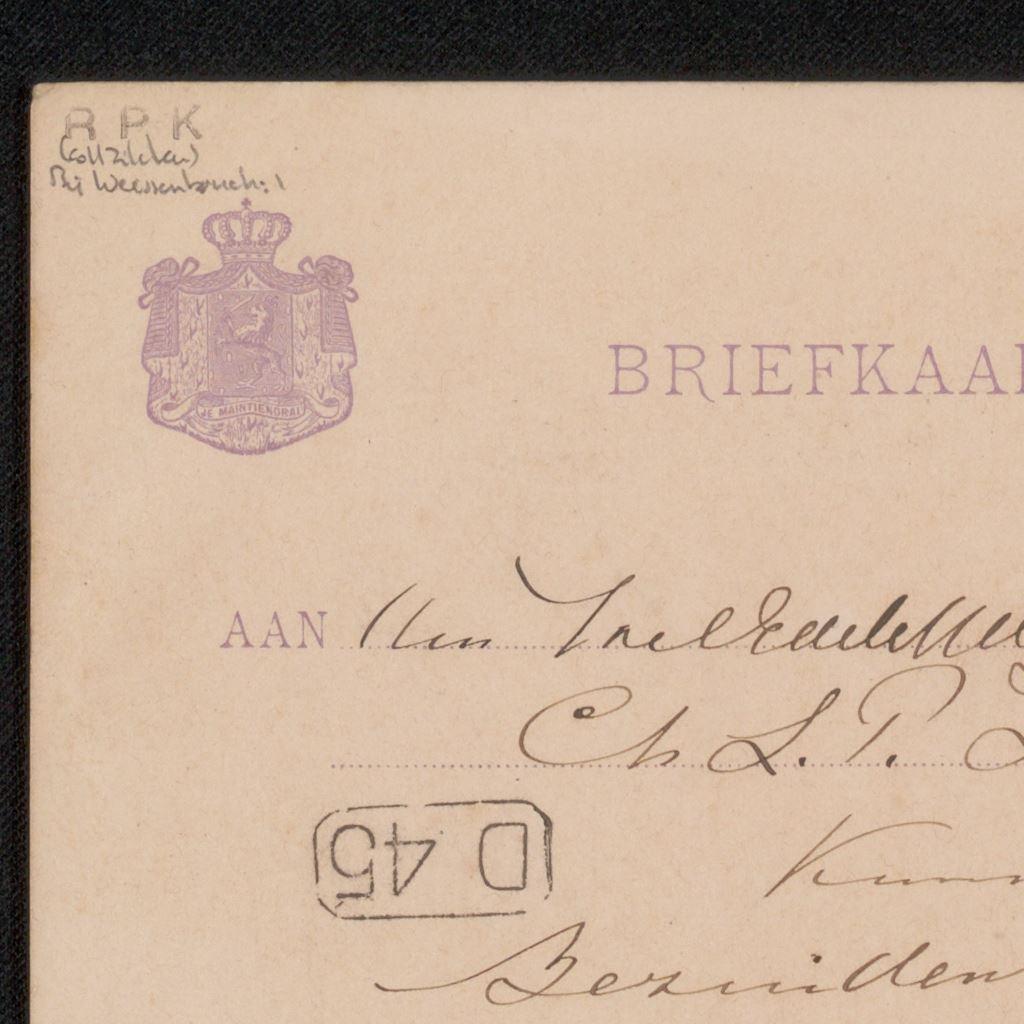 R P K
(coll Zilcken)
Bij Weissenbruch: 1
JE MAINTIENDRAI
BRIEFKAA
AAN Den WelEdele
Ch. L. P. Z
D 45
Kun
Bezuiden